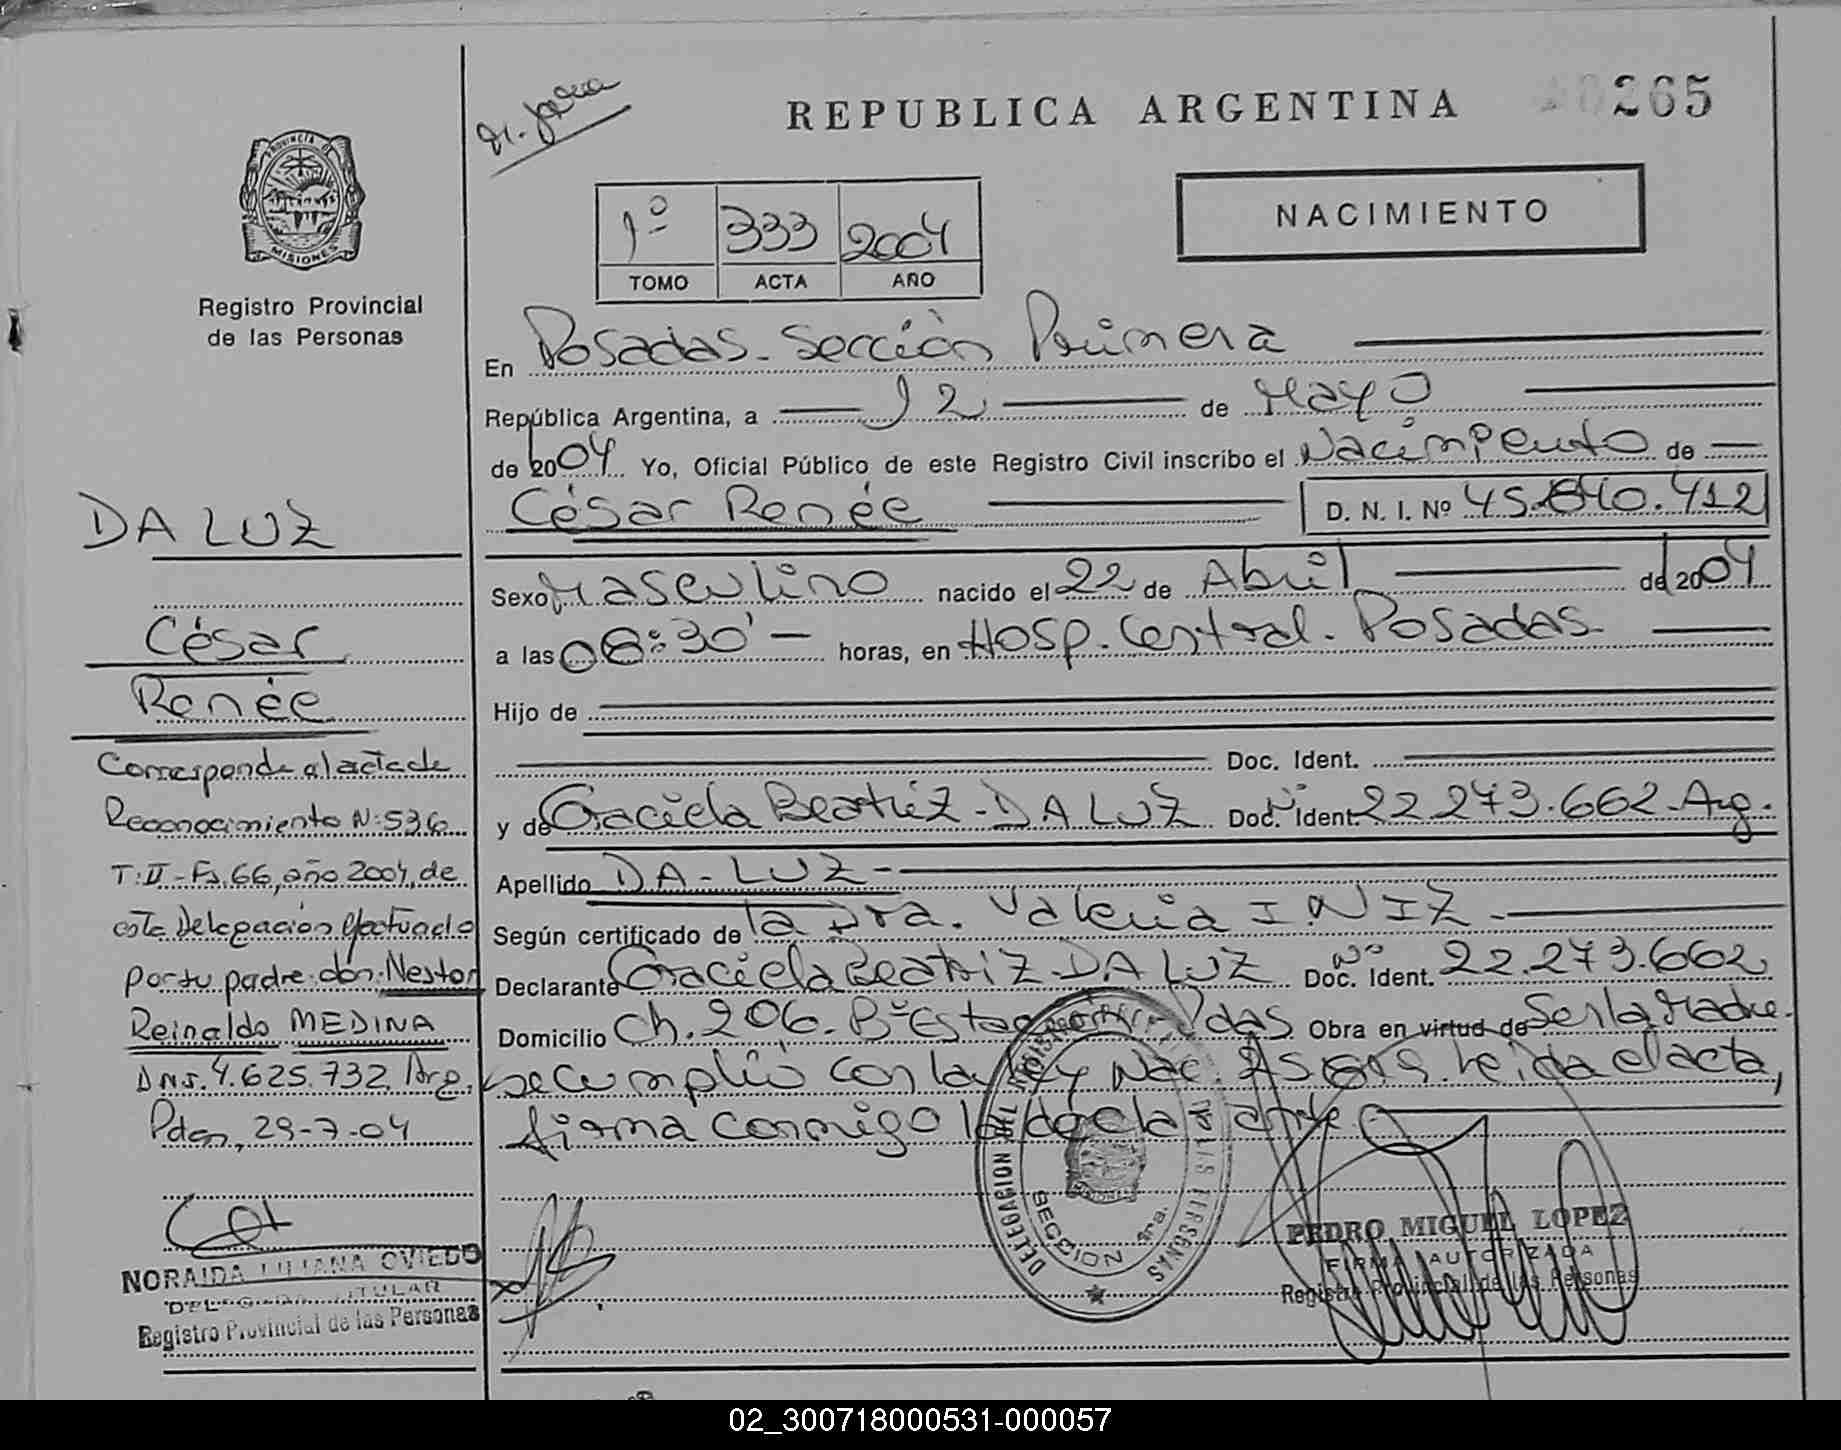 REPUBLICA ARGENTINA
265
PROVINCIA DE
MISIONES
Registro Provincial
de las Personas
1º 333 2004
TOMO ACTA AÑO
NACIMIENTO
En Posadas - Sección Primera
República Argentina, a 12 de Mayo
de 2004 Yo, Oficial Público de este Registro Civil inscribo el Nacimiento de
César Renée D. N. I. Nº 45.840.412
Sexo Masculino nacido el 22 de Abril de 2004
a las 08:30' horas, en Hosp. Central. Posadas
Hijo de
Doc. Ident.
y de Graciela Beatriz - DA LUZ Doc. Ident Nº 22.273.662. Arg.
Apellido DA - LUZ -
Según certificado de la Dra. Valeria INIZ -
Declarante Graciela Beatriz - DA LUZ Doc. Ident. Nº 22.273.662
Domicilio Ch. 206. Bº Pdas Obra en virtud de Ser la Madre.
se cumplió con la Ley Nac. leida el acta,
firma conmigo la declarante
DA LUZ
César
Renée
Corresponde al acta de
Reconocimiento N: 536
T: II - Fs. 66, año 2004, de
esta Delegación efectuado
por su padre: don: Nestor
Reinaldo MEDINA
DNI. 4.625.732 Arg.
Pdas, 29-7-04
NORAIDA LILIANA OVIEDO
DELEGADA TITULAR
Registro Provincial de las Personas
DELEGACION DEL REGISTRO DE LAS PERSONAS
SECCION 1ra.
PEDRO MIGUEL LOPEZ
FIRMA AUTORIZADA
Registro Provincial de las Personas
02_300718000531-000057